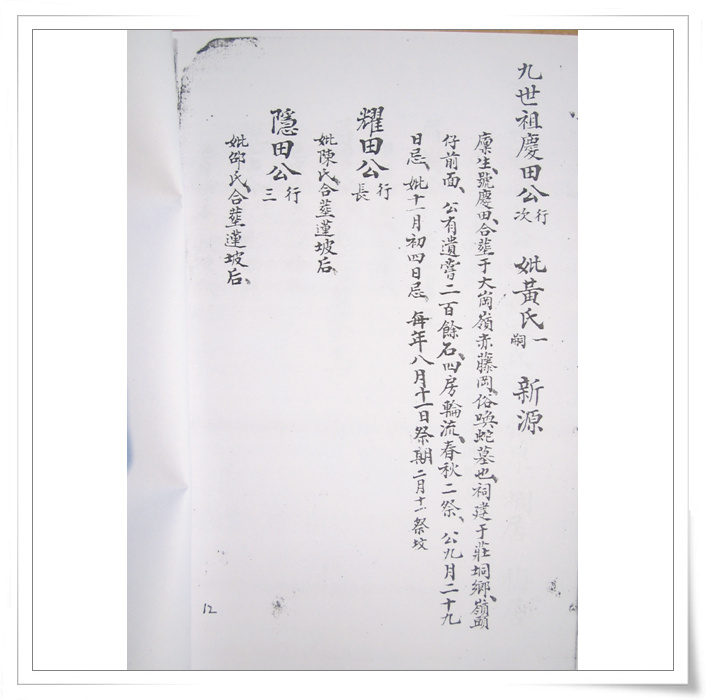 九世祖慶田公 行次 妣黃氏 一嗣 新源
廩生、號慶田、合葬于大崗嶺赤藤岡、俗喚蛇墓也、祠建于莊垌鄉、嶺頭
仔前面、公有遺嘗二百餘石、四房輪流、春秋二祭、公九月二十九
日忌、妣十一月初四日忌、每年八月十一日祭期 二月十一祭坟
耀田公 行長
妣陳氏合葬蓮坡后、
隱田公 行三
妣邵氏合葬蓮坡后、
12